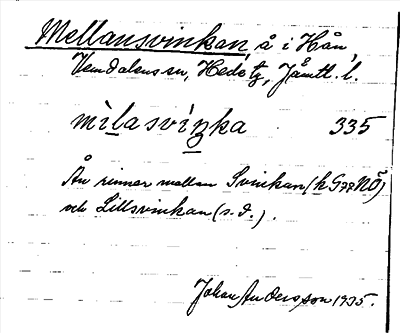 Mellansvinkan, å i Hån,
Vemdalens sn, Hede tg, Jämtl. l.
mìlasvíŋka 335
Ån rinner mellan Svinkan (h G78NÖ)
och Lillsvinkan (s. d.).
Johan Andersson 1935.